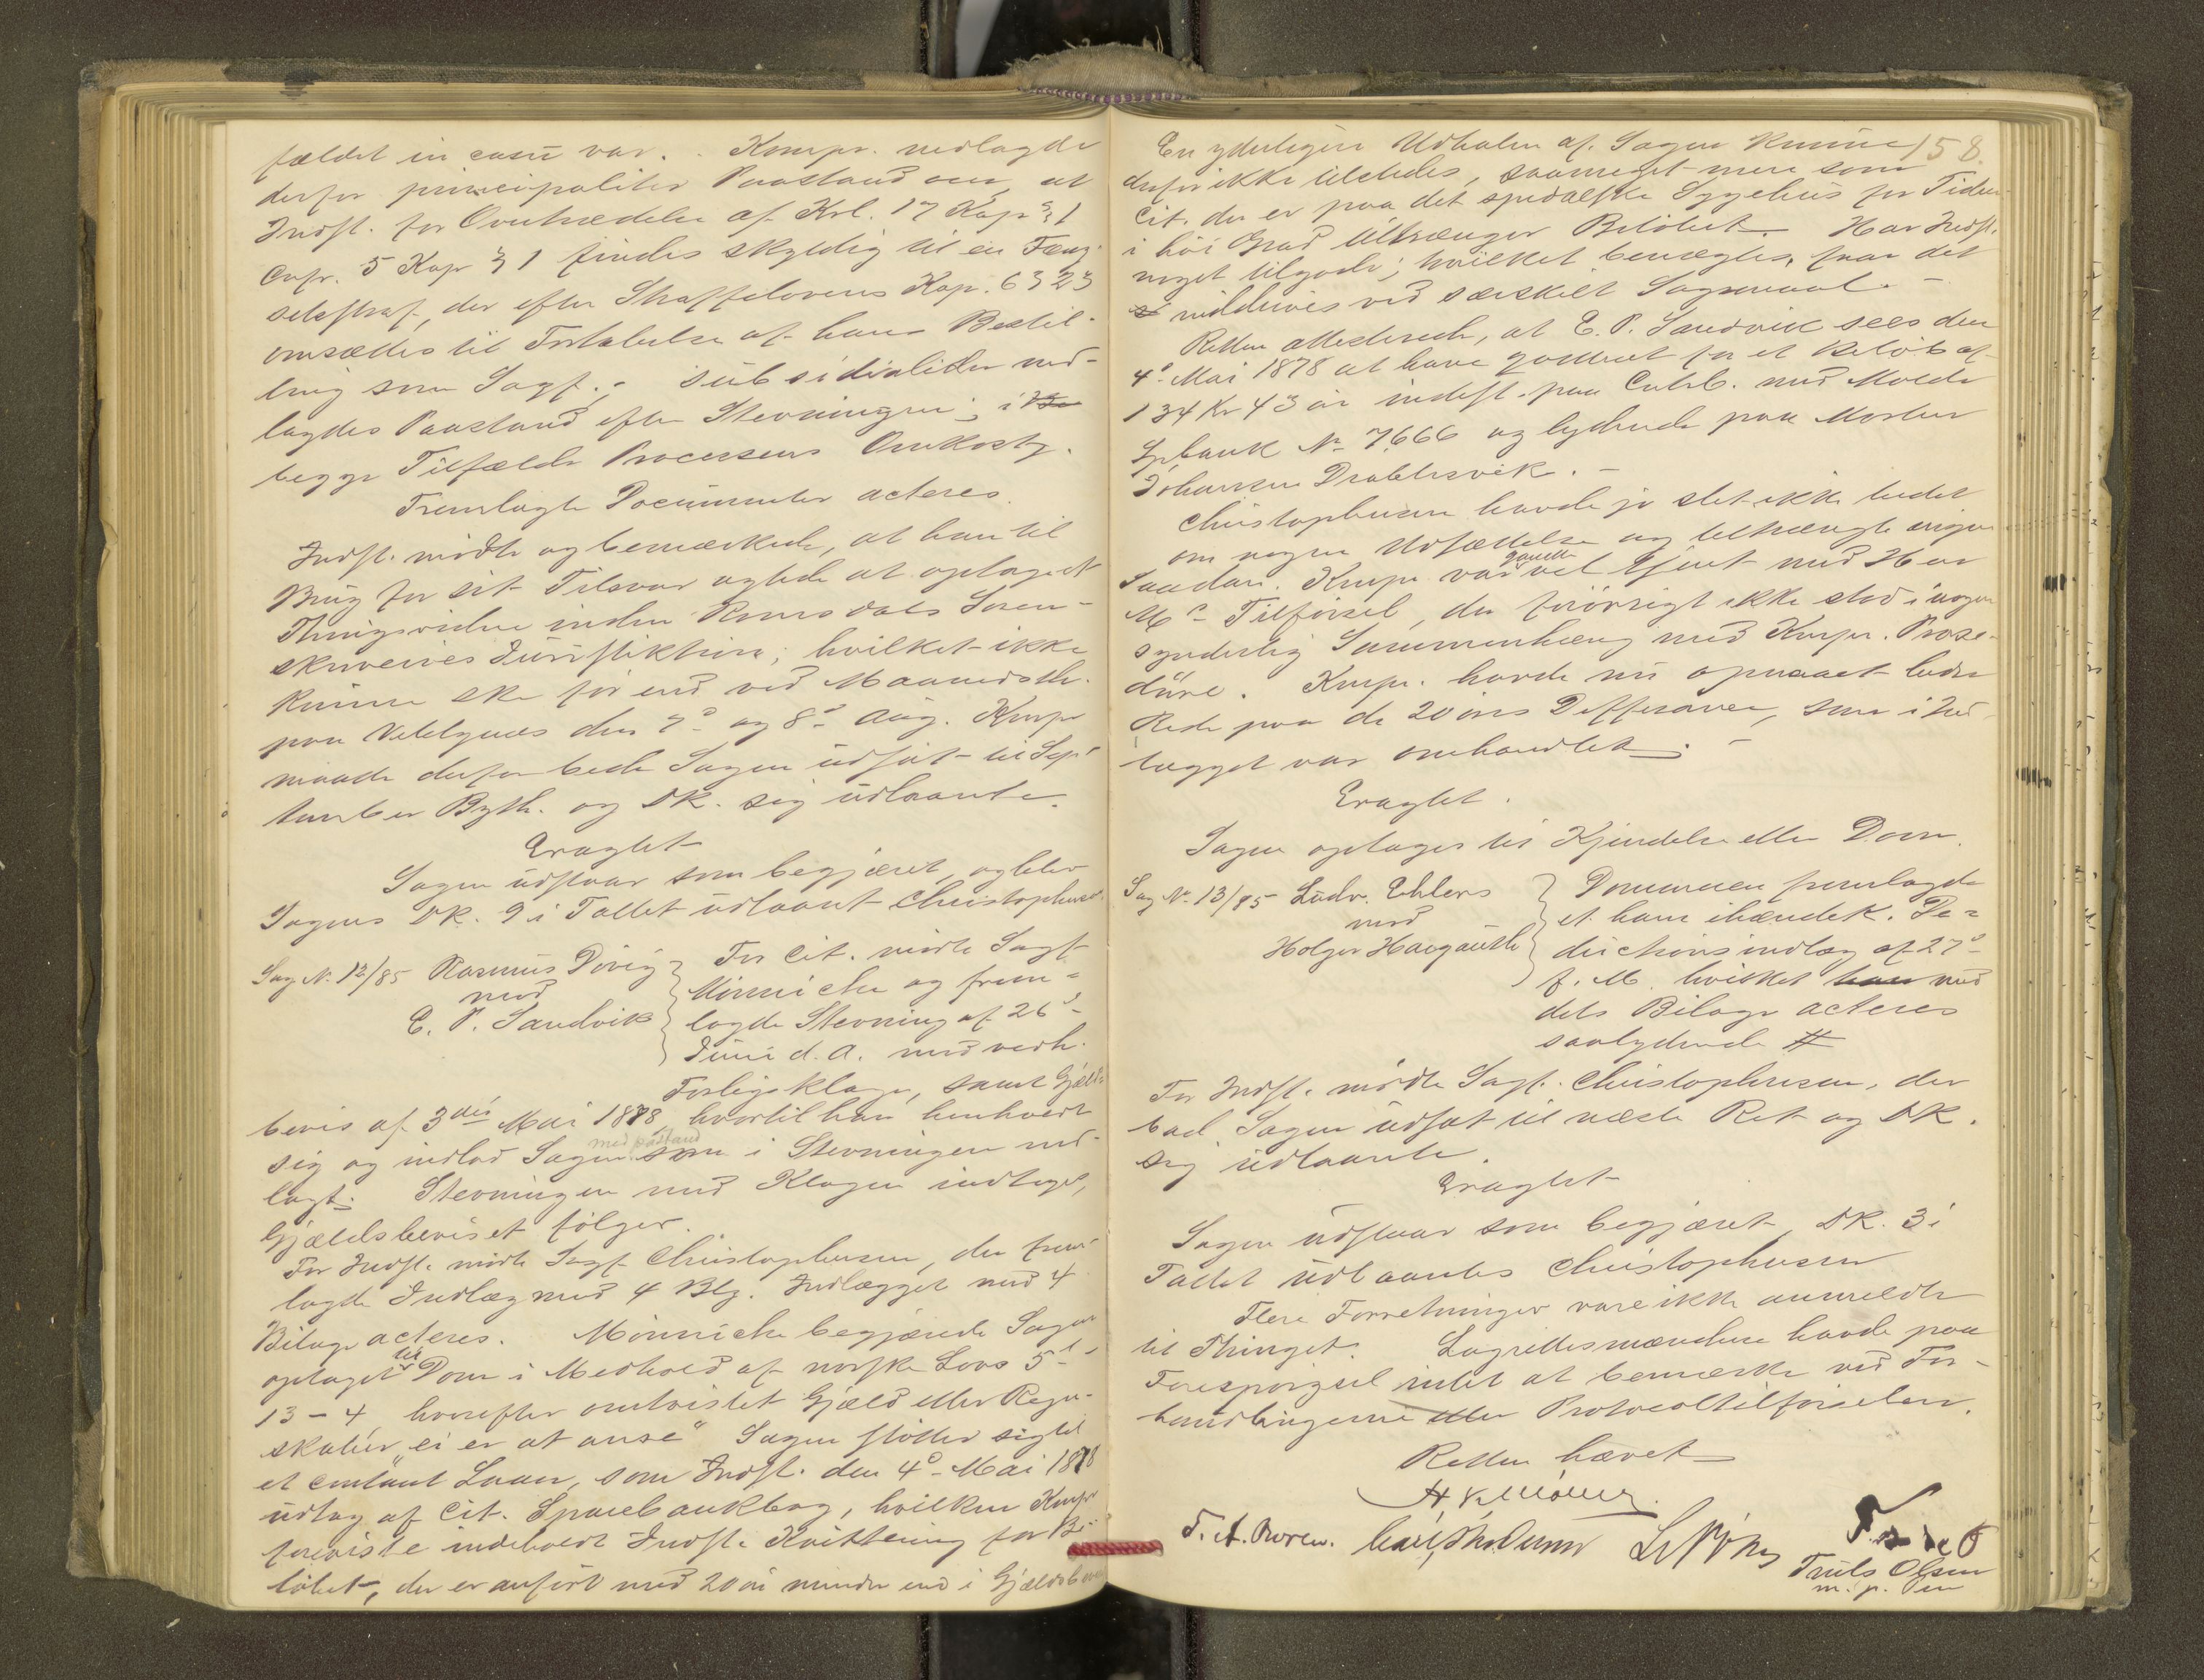 fældet in casu var. Kompr. nedlagde
derfor principaliter Paastand om, at
Indst. for Overtrædelse af Krl. 17 Kap § 1
Cnfr. 5 Kap § 1 findes skyldig til en Fæng-
selsstraf, der efter Straffelovens Kap. 6 § 23
omsættes til Fortabelse af hans Bestil-
ling som Sagf.; subsidialiter ned-
lagdes Paastand efter Stevningen; i
begge Tilfælde Processens Omkostg.
Fremlagte Documenter acteres.
Indst. mødte og bemærkede, at han til
Brug for sit Tilsvar agtede at optage et
Thingsvidne inden Romsdals Soren-
skriveries Jurisdiktion; hvilket ikke
kunne ske før end ved Maanedsth.
paa Veblungnæs den 7de og 8de Aug. Kmpr
maatte derfor bede Sagen udsat til Sep-
tember Byth. og DK. sig udlaante.
Eragtet
Sagen udstaar som begjæret, og blev
Sagens DK. 9 i Tallet udlaant Christophersen.
Sag N. 12/85 Rasmus Døving
mod
E. P. Sandvik
For Cit. mødte Sagf
Minniche og frem-
lagde Stevning af 26de
Juni d. A. med vedh.
Forligsklage, samt Gjælds-
bevis af 3die Mai 1878 hvortil han henholdt
sig og indlod Sagen med påstand som i Stevningen ned-
lagt. Stevningen med Klagen indtages,
Gjældsbeviset følger.
For Indst. mødte Sagf Christophersen, der frem-
lagde Indlæg med 4 Blg. Indlægget med 4
Bilage acteres. Minniche begjærede Sagen
optaget til Dom i Medhold af norske Lovs 5te-
13-4 hvorefter omtvistet Gjæld eller Regn-
skaber „ei er at anse“ Sagen støtter sig til
et contant Laan, som Indst. den 4de Mai 1878
udtog af Cit. Sparebankbog, hvilken Kmpr
foreviste indeholdt Indst. Kvittering for Be-
løbet, der er anført med 20 øre mindre end i Gjældsbeviset
158.
En yderligere Udhalen af Sagen kunne
derfor ikke tilstedes, saameget mere som
Cit. der er paa det spedalske Sygehus for Tiden
i høi Grad tiltrænger Beløbet. Har Indst.
noget tilgode; hvilket benægtes, faar det
inddrives ved særskilt Sagsmaal.
Retten attesterede, at E. P. Sandvik sees den
4de Mai 1878 at have kvitteret for et Beløb af
134 Kr 43 øre indest. paa Cntrb. med Molde
Spbank No 7666 og lydende paa Morten
Johansen Drabløsvik.
Christophersen havde jo slet ikke bedet
om nogen Udsættelse og tiltrængte ingen
Saadan. Kmpr. var ganske vel tjent med Har
Ms Tilførsel, der forøvrigt ikke stod i nogen
synderlig Sammenhæng med Kmpr. Proce-
dure. Kmpr. havde nu opnaaet bedre
Rede paa de 20 øres Differance, som i Ind-
lægget var omhandlet.
Eragtet.
Sagen optages til Kjendelse eller Dom.
Sag No 13/85 Ludv. Ehlers
mod
Holger Haugauth
Dommeren fremlagde
et ham ihændek. De-
ductionsindlæg af 27de
f. M. hvilket med
dets Bilage acteres
saalydende #
For Indst. mødte Sagf. Christophersen, der
bad Sagen udsat til næste Ret og DK.
sig udlaante.
Eragtet
Sagen udstaar som begjæret, DK. 3 i
Tallet udlaantes Christophersen
Flere Forretninger vare ikke anmeldte
til Thinget. Lagrettesmændene havde paa
Forespørgsel intet at bemærke ved For-
handlingerne eller Protocoltilførselen.
Retten hævet
Truls Olsen
m. p. Pen